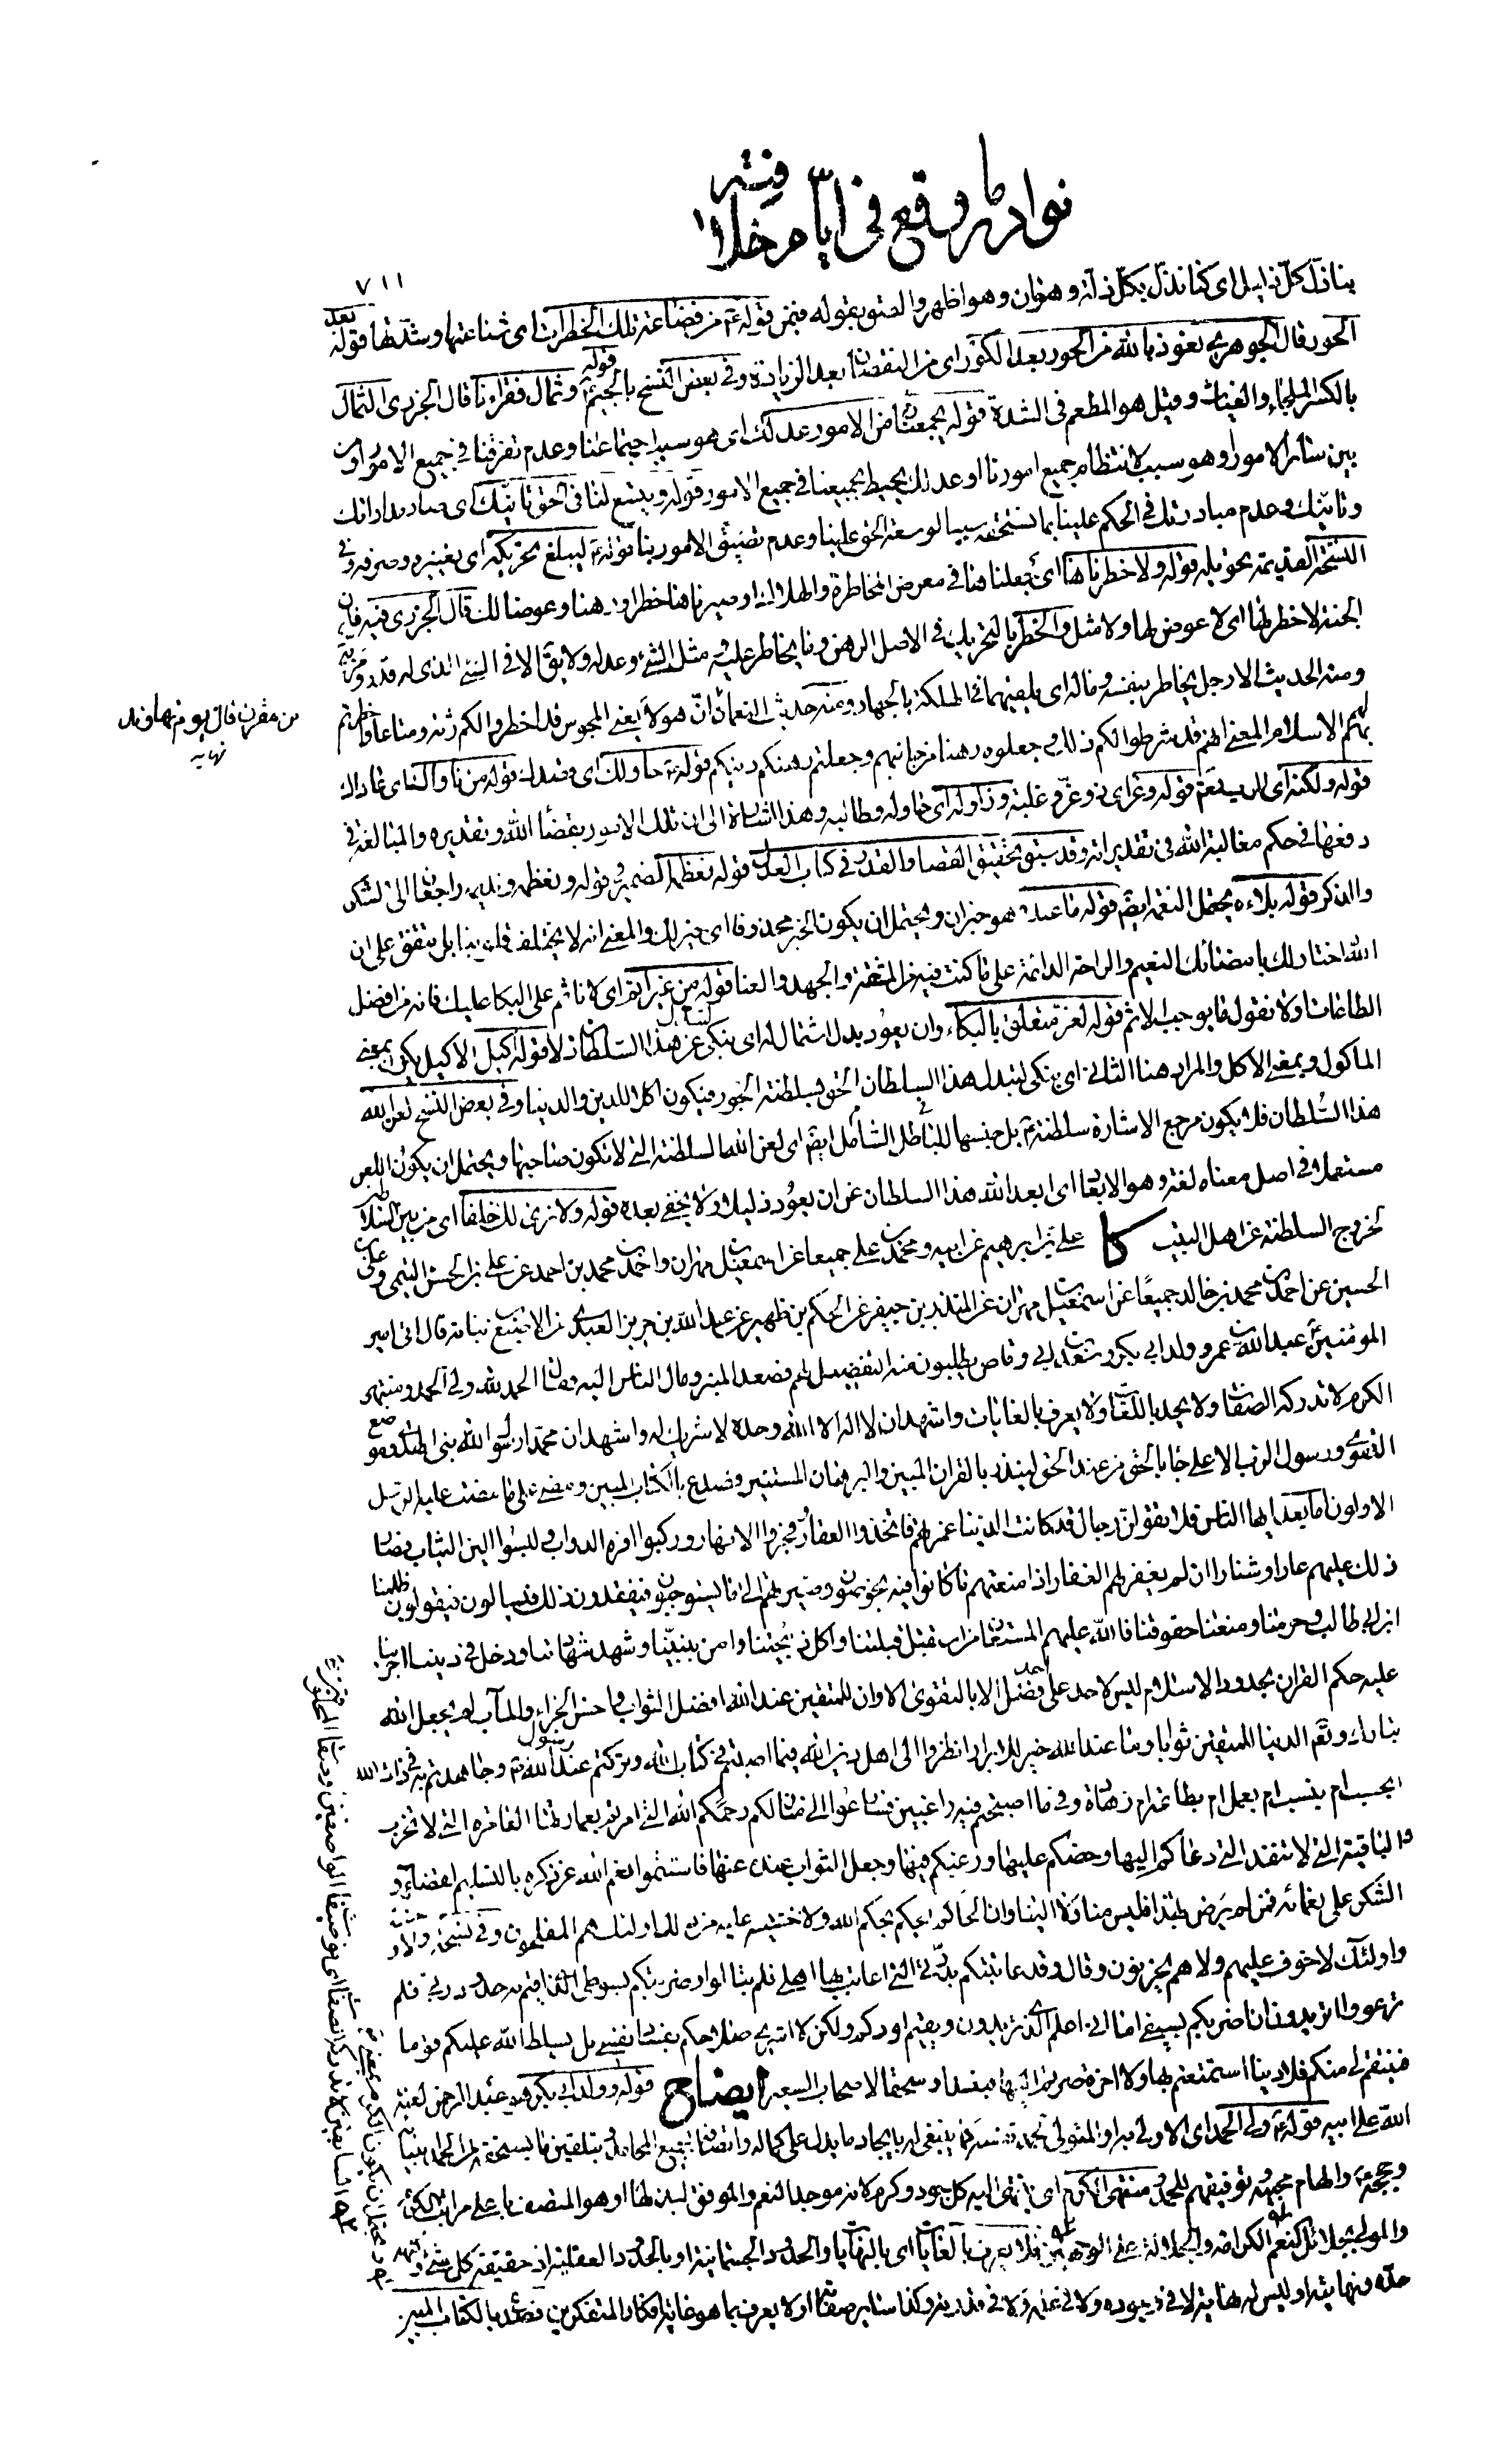 نوادر ما وقع في ايّام خلافته
٧١١
بنا ذلّ كلّ ذليل اى كنا نذل بكل ذلة وهوان وهو اظهر والصق بقوله فمن قوله ع من فضاعة تلك الخطرات اى شناعتها وشدّتها قوله بعد
الحور قال الجوهرى نعوذ بالله من الحور بعد الكور اى من النقصان بعد الزيادة وفى بعض النسخ بالجيم قوله وثمال فقراءنا قال الجزرى الثمال
بالكسر الملجاء والغياث وقيل هو المطعم فى الشدة قوله يجمعنا من الامور عدلك اى هو سبب اجتماعنا وعدم تفرقنا فى جميع الامور او من
بين سائر الامور او هو سبب لانتظام جميع امورنا او عدلك يحيط بجميعنا فى جميع الامور قوله ويتسع لنا فى الحق تانيك اى صار مداراتك
وتانيك وعدم مبادرتك فى الحكم علينا بما نستحقه سببا لوسعة الحق علينا وعدم تضيق الامور بنا قوله ع ليبلغ تحريكه اى تغييره وصرفه وفى
النسخة القديمة تحويله قوله ولا خطرناها اى جعلناها فى معرض المخاطرة والهلاك او صيرناها خطرا ورهنا وعوضا لك قال الجزرى فيه فان
الجنة لا خطر لها اى لا عوض لها ولا مثل والخطر بالتحريك فى الاصل الرهن وما يخاطر عليه ومثل الشئ وعدله ولا يقال الا فى الشئ الذى له قدر ومزية
ومنه الحديث الا رجل يخاطر بنفسه وماله اى يلقيهما فى الهلكة بالجهاد ومنه حديث النعمان انّ هولاء يعنى المجوس قد اخطروا لكم رثة ومتاعا واخطرتم
بن مقرن قال يوم نهاوند
نهايه
لهم الاسلام المعنى انهم قد شرطوا لكم ذلك وجعلوه رهنا من جانبهم وجعلتم رهنكم دينكم قوله ع حاولك اى قصدك قوله من ناواك اى عاداك
قوله ولكنه اى الرب تعم قوله وعز اى ذو عز وغلبة وزاوله اى حاوله وطالبه وهذا اشارة الى ان تلك الامور بقضاء الله وتقديره والمبالغة فى
دفعها فى حكم مغالبة الله فى تقديراته وقد سبق تحقيق القضا والقدر فى كتاب العدل قوله نعظمه الضمير فى قوله ونعظمه ونديمه راجعان الى الشكر
والذكر قوله بلاءه يحتمل النعمة ايضم قوله ما عند هو خبر ان ويحتمل ان يكون الخبر محذوفا اى خير لك والمعنى انه لا يختلف قلوبنا بل يتفق على ان
الله اختار لك بامضائك النعيم والراحة الدائمة على ما كنت فيه من المشقة والجهد والعنا قوله من غير اثم اى لا ناثم على البكاء عليك فانه من افضل
الطاعات اولا نقول ما يوجب الاثم قوله لعز متعلق بالبكاء وان يعود بدل اشتمال له اى نبكى عن هذا السلطان ذلا قوله اكيل الاكيل يكون بمعنى
الماكول وبمعنى الاكل والمراد هنا الثانى اى نبكى لتبدل هذا السلطان الحق بسلطنة الجور فيكون اكلا للدين والدنيا وفى بعض النسخ لعن الله
هذا السلطان فلا يكون مرجع الاشارة سلطنته ع بل جنسها للباطل الشامل ايضم اى لعن الله السلطنة التى لا تكون صاحبها ويحتمل ان يكون اللعن
مستعملا فى اصل معناه لغة وهو الابعاد اى ابعد الله هذا السلطان عن ان يعود ذليلا ولا يخفى بعده قوله ولا نرى لك خلفا اى من بين السلاطين
لخروج السلطنة عن اهل البيت كا على بن ابرهيم عن ابيه ومحمد بن على جميعا عن اسمعيل بن مهران واحمد بن محمد بن احمد عن على بن الحسن التيمى وعلى بن
الحسين عن احمد بن محمد بن خالد جميعا عن اسمعيل بن مهران عن المنذر بن جيفر عن الحكم بن ظهير عن عبد الله بن جرير العبدى عن الاصبغ بن نباتة قال اتى امير
المومنين ع عبد الله بن عمر وولد ابى بكر وسعد بن ابى وقاص يطلبون منه التفضيل لهم فصعد المنبر ومال الناس اليه فقال الحمد لله ولى الحمد ومنتهى
الكرم لا تدركه الصفات ولا يحد باللغات ولا يعرف بالغايات واشهد ان لا اله الا الله وحده لا شريك له واشهد ان محمدا رسول الله نبى الهدى وموضع
التقوى ورسول الرب الاعلى جاء بالحق من عند الحق لينذر بالقران المبين والبرهان المستنير وصدع بالكتاب المبين ومضى على ما مضت عليه الرسل
الاولون اما بعد ايها الناس فلا يقولن رجال قد كانت الدنيا غمرتهم فاتخذوا العقار وفجروا الانهار وركبوا افره الدواب ولبسوا الين الثياب فصار
ذلك عليهم عارا وشنارا ان لم يغفر لهم الغفار اذا منعتهم ما كانوا فيه يخوضون وصيرتهم الى ما يستوجبون فيفقدون ذلك فيسالون فيقولون ظلمنا
ابن ابى طالب وحرمنا ومنعنا حقوقنا فالله عليهم المستعان من استقبل قبلتنا واكل ذبيحتنا وامن بنبينا وشهد شهادتنا ودخل فى ديننا اجرينا
عليه حكم القران وحدود الاسلام ليس لاحد على احد فضل الا بالتقوى الا وان للمتقين عند الله افضل الثواب واحسن الجزاء والمآب لم يجعل الله
تبارك وتعم الدنيا للمتقين ثوابا وما عند الله خير للابرار انظروا الى اهل دين الله فيما اصبتم فى كتاب الله وتركتم عند رسول الله ص وجاهدتم به فى ذات الله
ابحسب ام بنسب ام بعمل ام بطاعة ام زهادة وفيما اصبحتم فيه راغبين فسارعوا الى منازلكم رحمكم الله التى امرتم بعمارتها العامرة التى لا تخرب
والباقية التى لا تنفد التى دعاكم اليها وحضكم عليها ورغبكم فيها وجعل الثواب عنده عنها فاستتموا نعم الله عز ذكره بالتسليم لقضائه و
الشكر على نعمائه فمن لم يرض بهذا فليس منا ولا الينا وان الحاكم يحكم بحكم الله ولا خشية عليه من ذلك اولئك هم المفلحون وفى نسخة ولا وحشة
واولئك لا خوف عليهم ولا هم يحزنون وقال وقد عاتبتكم بدرتى التى اعاتب بها اهلى فلم تبالوا وضربتكم بسوطى الذى اقيم به حدود ربى فلم
ترعووا اتريدون ان اضربكم بسيفى اما انى اعلم الذى تريدون ويقيم اودكم ولكن لا اشرى صلاحكم بفساد نفسى بل يسلط الله عليكم قوما
فينتقم لى منكم فلا دنيا استمتعتم بها ولا اخرة صرتم اليها فبعدا وسحقا لاصحاب السعير ايضاح قوله وولد ابى بكر هو عبد الرحمن لعنة
الله على ابيه قوله ع ولى الحمد اى الاولى به او المتولى لحمد نفسه كما ينبغى له بايجاد ما يدل على كماله واتصافه بجميع المحامد وبتلقين ما يستحقه من الحمد انبيائه
وحججه ع والهام محبيه وتوفيقهم للحمد منتهى الكرم اى ينتهى اليه كل جود وكرم لانه موجد النعم والموفق لبذلها او هو المتصف باعلى مراتب الكرم
والمولى بجلائل النعم الكرامة والجلالة على الوجهين فلا يعرف بالغايات اى بالنهايات والحدود الجسمانية او بالحدود العقلية اذ حقيقة كل شئ وكنهه
حده ونهايته او ليس له نهاية لا فى وجوده ولا فى علمه ولا فى قدرته وكذا ساير صفاته او لا يعرف بما هو غاية افكار المتفكرين فصدع بالكتاب المبين